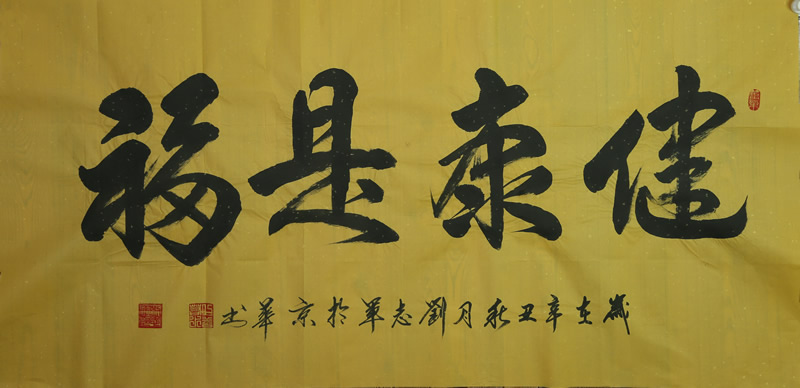 健康是福
歲在辛丑秋月劉志軍於京華书